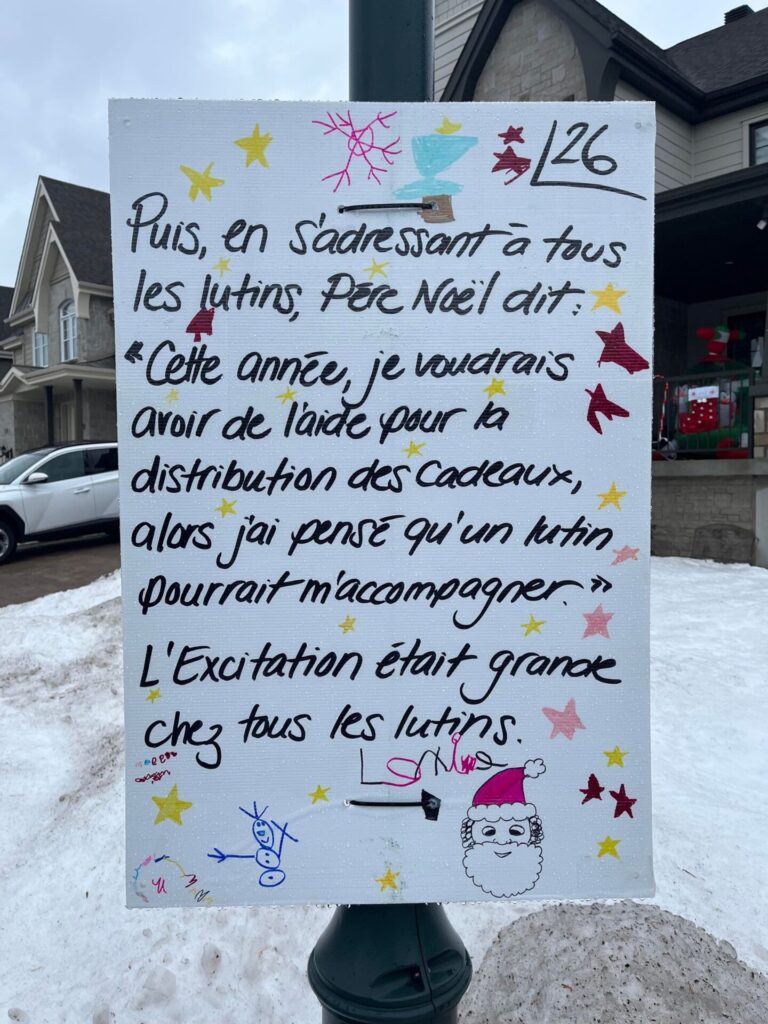 26
Puis, en s'adressant à tous
les lutins, Père Noël dit:
"Cette année, je voudrais
avoir de l'aide pour la
distribution des cadeaux,
alors j'ai pensé qu'un lutin
pourrait m'accompagner."
L'Excitation était grande
chez tous les lutins.